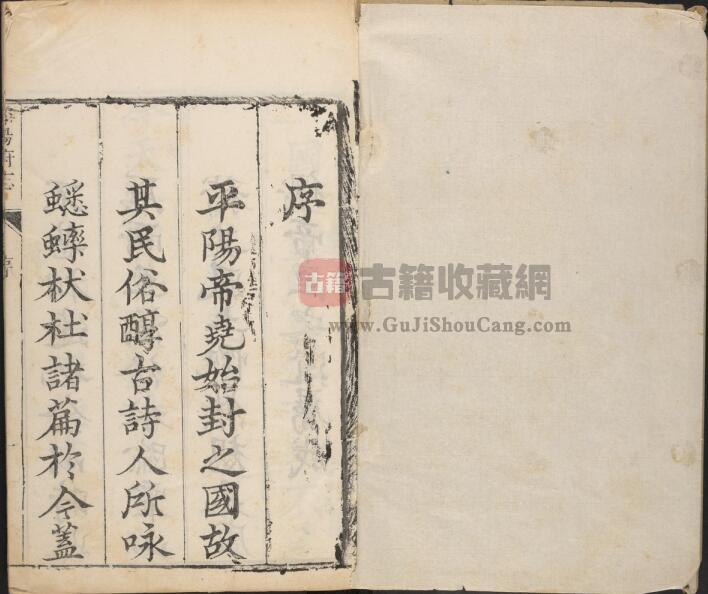 序
平陽帝堯始封之國故
其民俗醇古詩人所咏
蟋蟀杕杜諸篇於今蓋
陽府志
序
古籍
古籍收藏網
www.GuJiShouCang.com